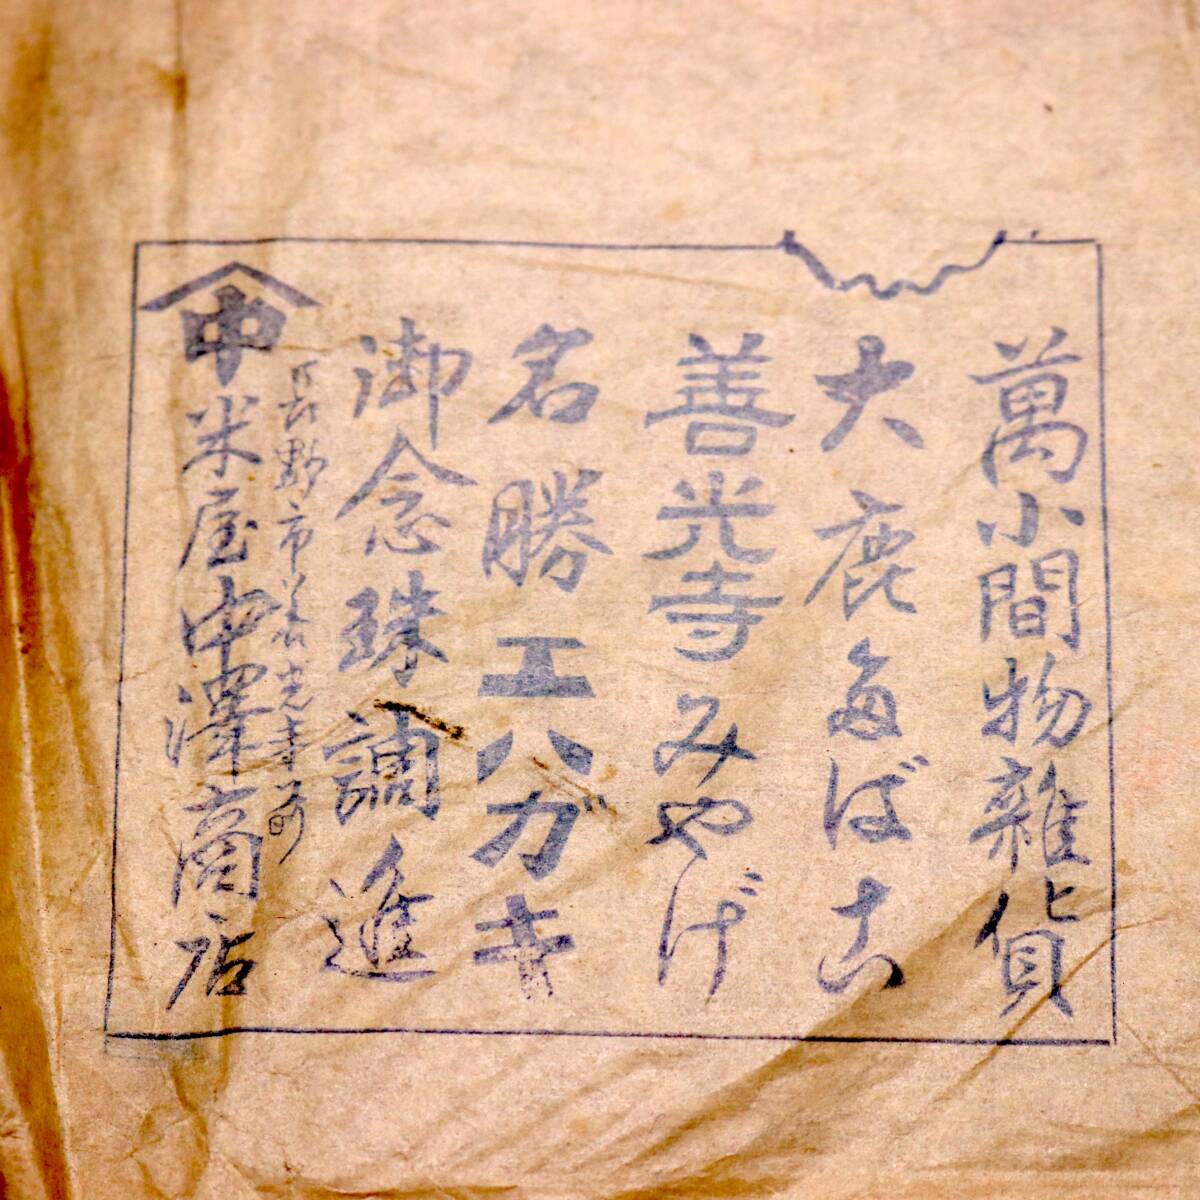 萬小間物雜貨
大鹿たばこ
善光寺みやげ
名勝エハガキ
御念珠調進
長野市善光寺前
中
米屋中澤商店